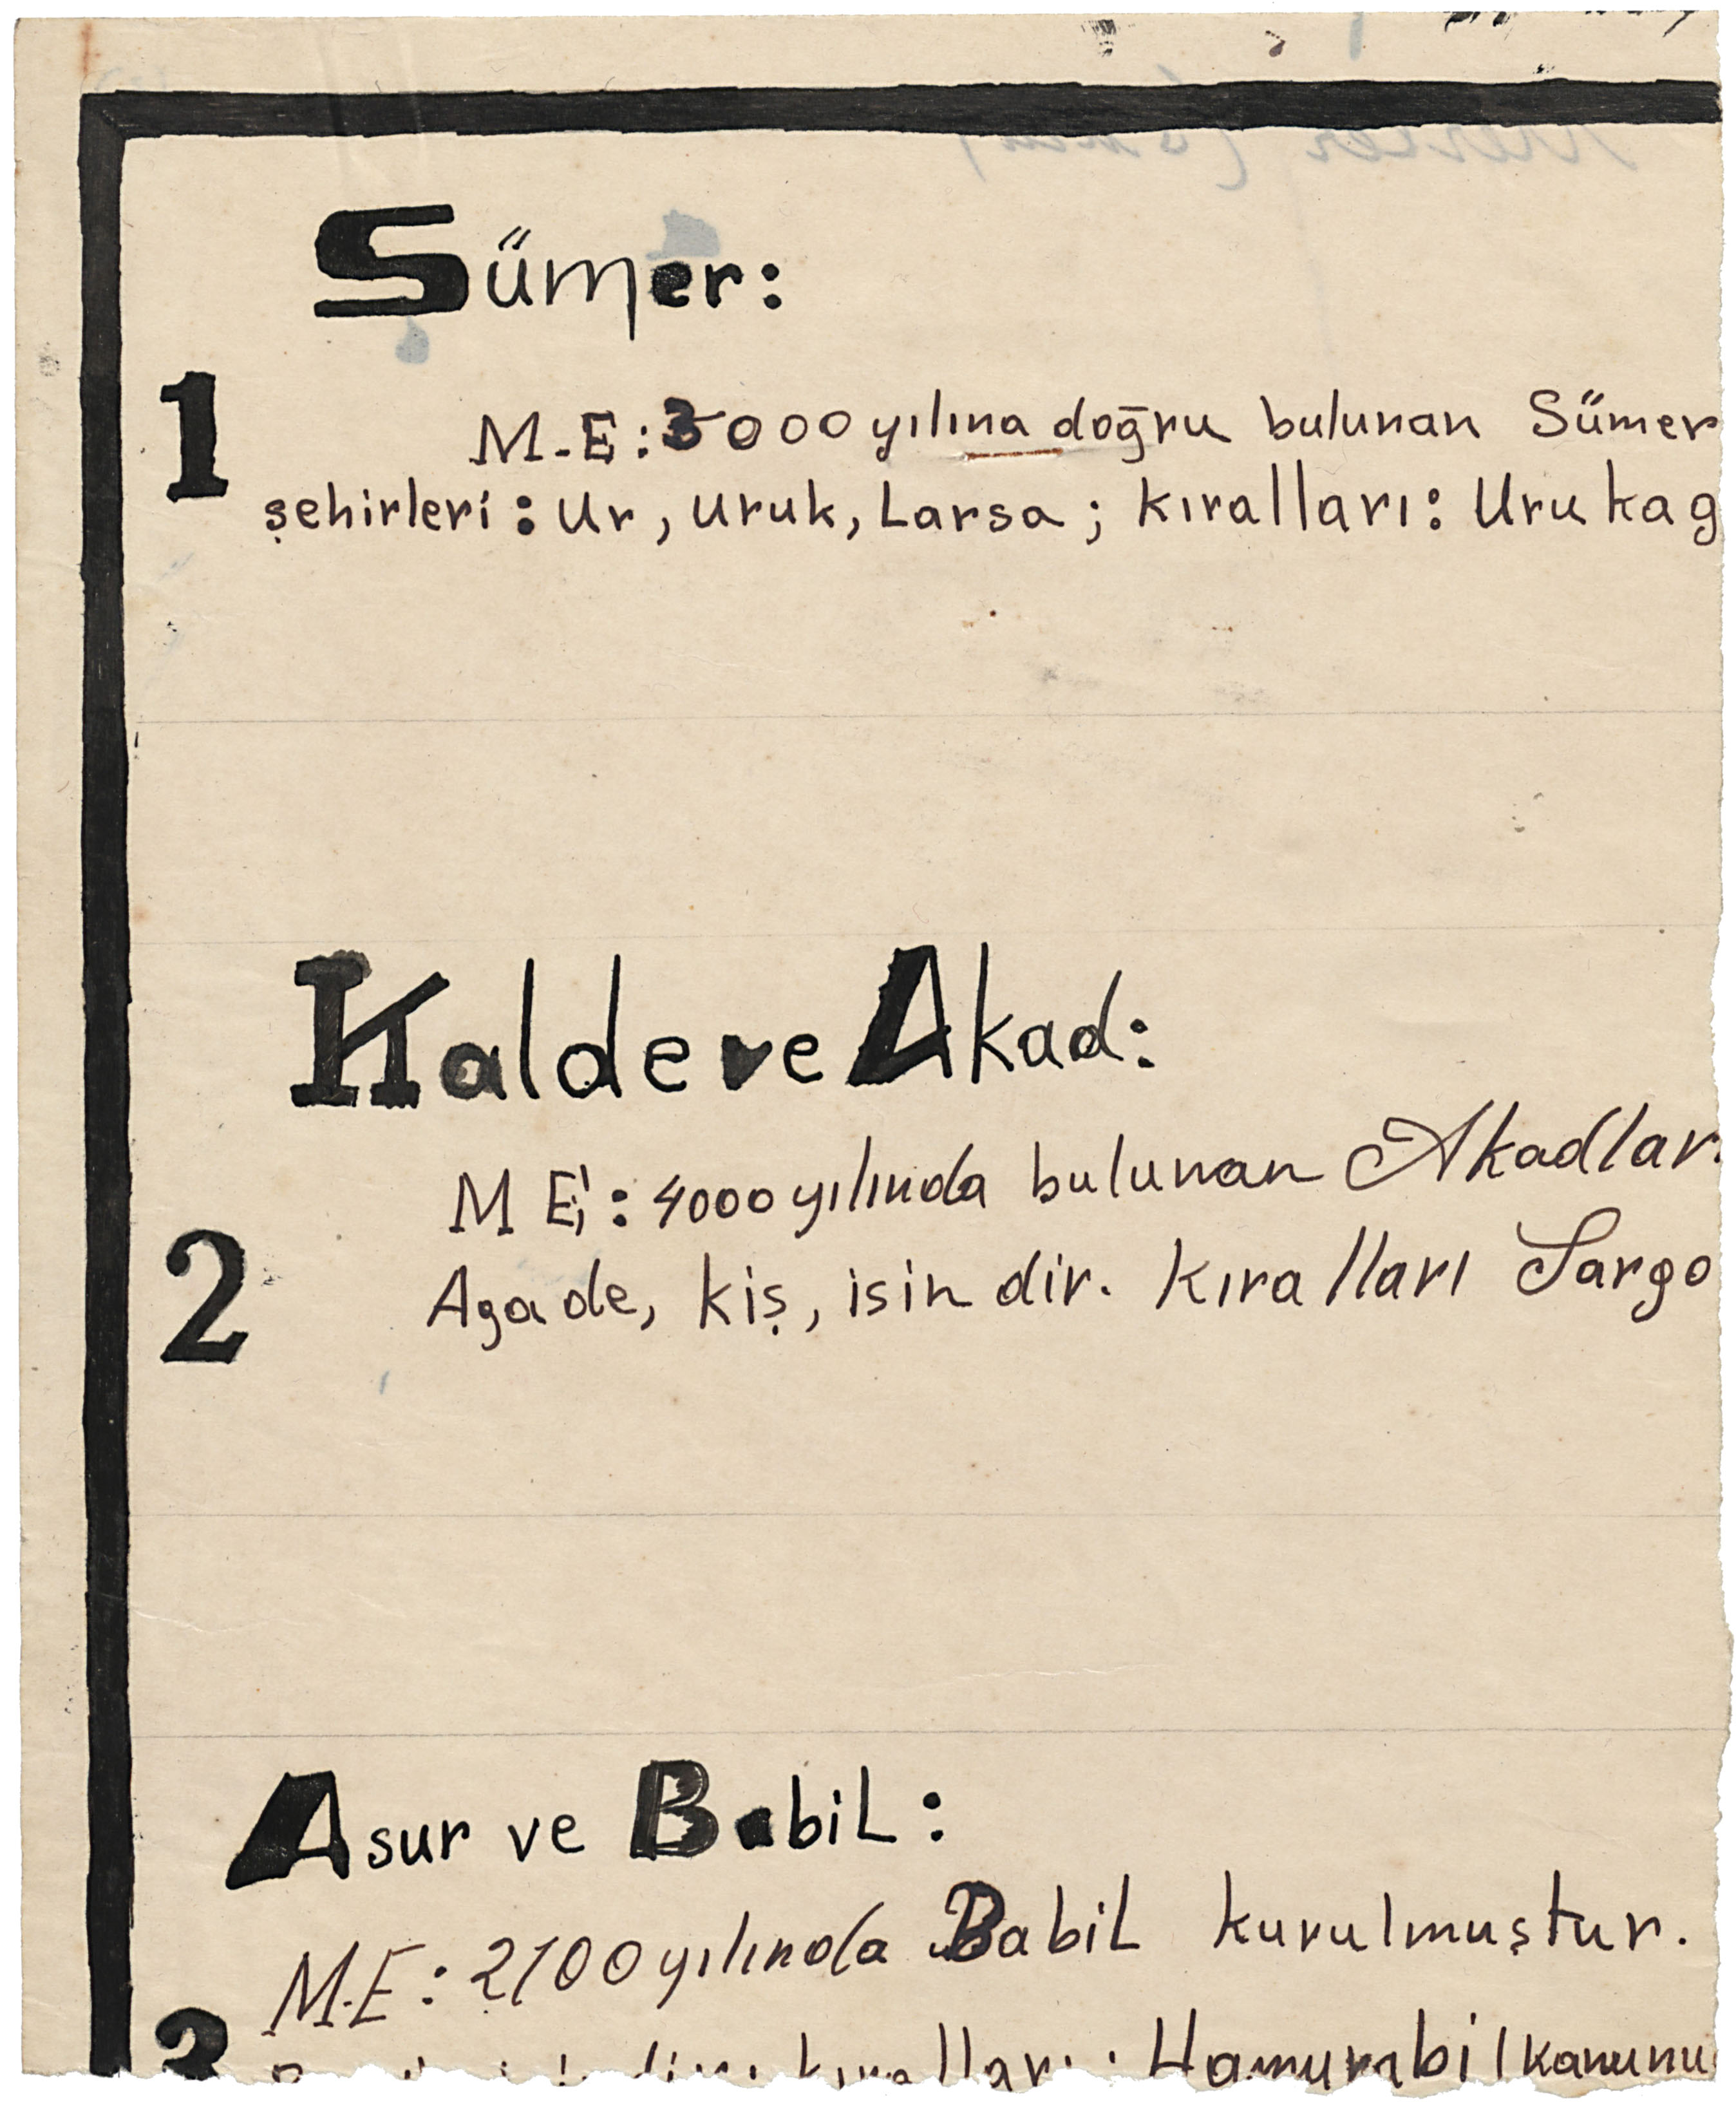 Sümer:
1
M-E:3000 yılına doğru bulunan Sümer
şehirleri: Ur, Uruk, Larsa; kıralları: Urukag
Kalde ve Akad:
M E: 4000 yılında bulunan Akadlar.
2
Agade, kiş, isin dir. kıralları Sargo
Asur ve BabiL:
M.E: 2100 yılında BabiL kurulmuştur.
3
kıralları: Hamurabi (kanunu